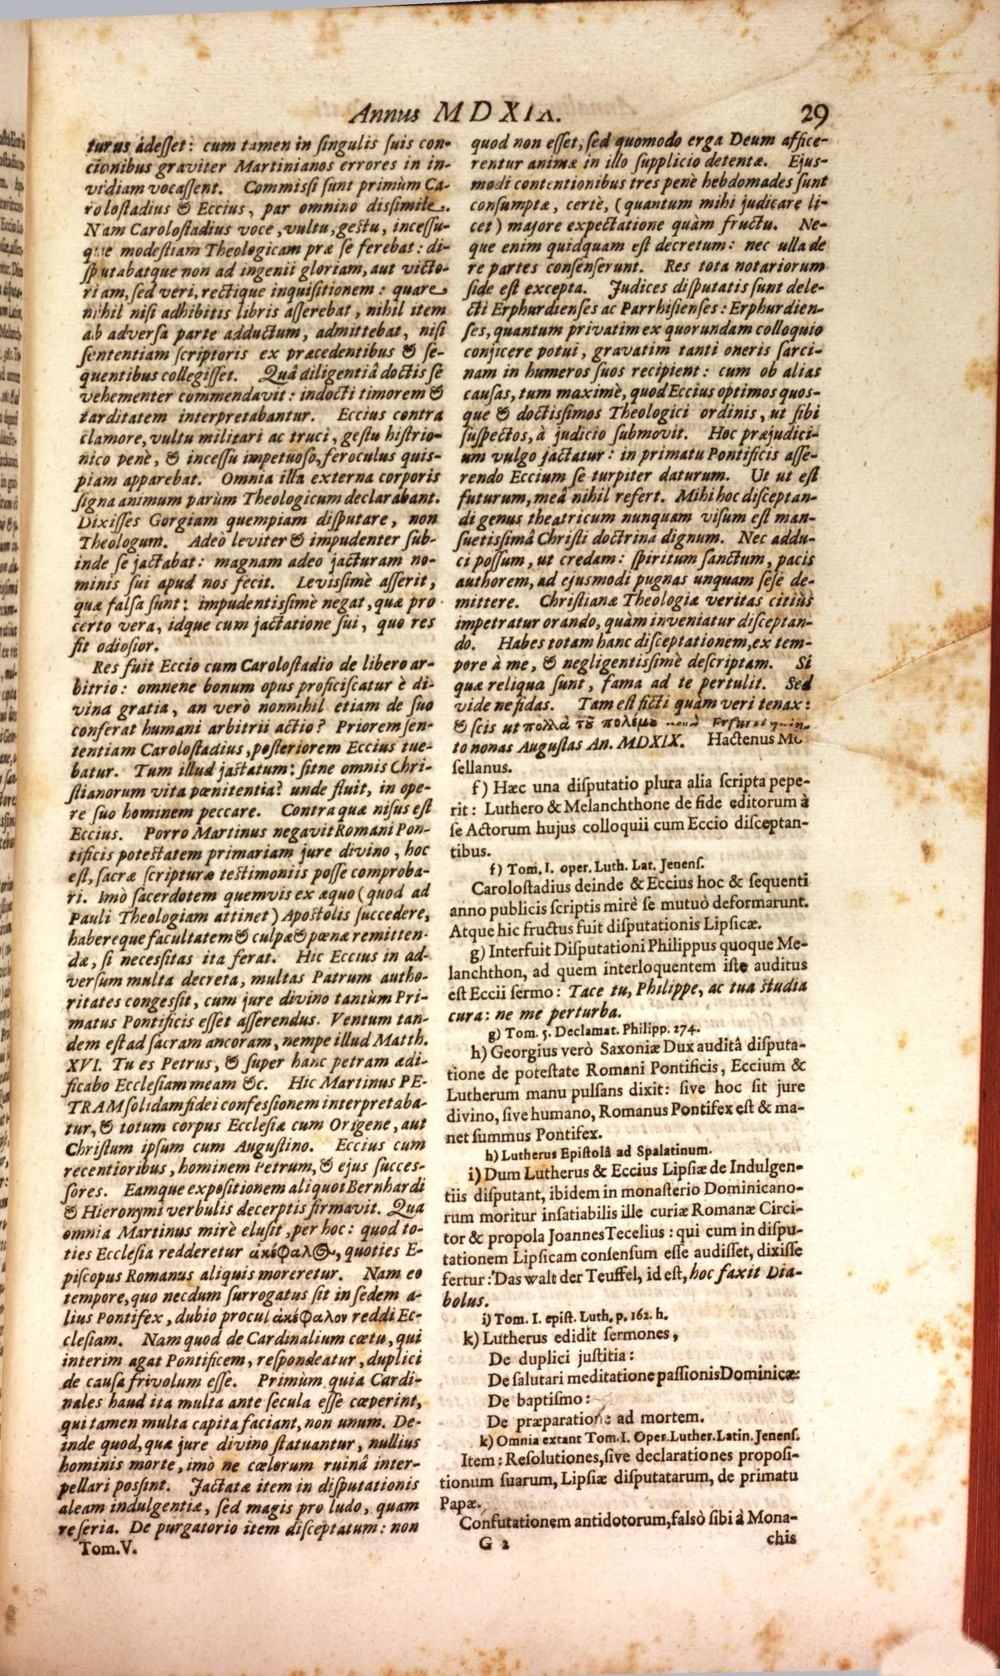 Annus MDXIX.
29
turus adesset: cum tamen in singulis suis con-
cionibus graviter Martinianos errores in in-
vidiam vocassent. Commissi sunt primùm Ca-
rolostadius & Eccius, par omnino dissimile.
Nam Carolostadius voce, vultu, gestu, incessu-
que modestiam Theologicam præ se ferebat: di-
sputabatque non ad ingenii gloriam, aut victo-
riam, sed veri, rectique inquisitionem: quare
nihil nisi adhibitis libris asserebat, nihil item
ab adversa parte adductum, admittebat, nisi
sententiam scriptoris ex præcedentibus & se-
quentibus collegisset. Quâ diligentiâ doctis se
vehementer commendavit: indocti timorem &
tarditatem interpretabantur. Eccius contra
clamore, vultu militari ac truci, gestu histrio-
nico penè, & incessu impetuoso, feroculus quis-
piam apparebat. Omnia illa externa corporis
signa animum parùm Theologicum declarabant.
Dixisses Gorgiam quempiam disputare, non
Theologum. Adeò leviter & impudenter sub-
inde se jactabat: magnam adeo jacturam no-
minis sui apud nos fecit. Levissimè asserit,
quæ falsa sunt: impudentissimè negat, quæ pro
certo vera, idque cum jactatione sui, quo res
fit odiosior.
Res fuit Eccio cum Carolostadio de libero ar-
bitrio: omnene bonum opus proficiscatur è di-
vina gratia, an verò nonnihil etiam de suo
conferat humani arbitrii actio? Priorem sen-
tentiam Carolostadius, posteriorem Eccius tue-
batur. Tum illud jactatum: sitne omnis Chri-
stianorum vita pœnitentia? unde fluit, in ope-
re suo hominem peccare. Contra quæ nisus est
Eccius. Porro Martinus negavit Romani Pon-
tificis potestatem primariam jure divino, hoc
est, sacræ scripturæ testimoniis posse comproba-
ri. Imò sacerdotem quemvis ex æquo (quod ad
Pauli Theologiam attinet) Apostolis succedere,
habereque facultatem & culpæ & pœnæ remitten-
dæ, si necessitas ita ferat. Hic Eccius in ad-
versum multa decreta, multas Patrum autho-
ritates congessit, cum jure divino tantùm Pri-
matus Pontificis esset asserendus. Ventum tan-
dem est ad sacram ancoram, nempe illud Matth.
XVI. Tu es Petrus, & super hanc petram ædi-
ficabo Ecclesiam meam &c. Hic Martinus PE-
TRAM solidam fidei confessionem interpretaba-
tur, & totum corpus Ecclesiæ cum Origene, aut
Christum ipsum cum Augustino. Eccius cum
recentioribus, hominem Petrum, & ejus succes-
sores. Eamque expositionem aliquot Bernhardi
& Hieronymi verbulis decerptis firmavit. Qua
omnia Martinus mirè elusit, per hoc: quod to-
ties Ecclesia redderetur ἀκέφαλος, quoties E-
piscopus Romanus aliquis moreretur. Nam eo
tempore, quo necdum surrogatus sit in sedem a-
lius Pontifex, dubio procul ἀκέφαλον reddi Ec-
clesiam. Nam quod de Cardinalium cœtu, qui
interim agat Pontificem, respondeatur, duplici
de causa frivolum esse. Primùm quia Cardi-
nales haud ita multa ante secula esse cœperint,
qui tamen multa capita faciant, non unum. De-
inde quod, quæ jure divino statuantur, nullius
hominis morte, imò ne cœlorum ruinâ inter-
pellari possint. Jactatæ item in disputationis
aleam indulgentiæ, sed magis pro ludo, quam
re seria. De purgatorio item disceptatum: non
Tom. V.
quod non esset, sed quomodo erga Deum affice-
rentur animæ in illo supplicio detentæ. Ejus-
modi contentionibus tres penè hebdomades sunt
consumptæ, certè, (quantum mihi judicare li-
cet) majore expectatione quàm fructu. Ne-
que enim quidquam est decretum: nec ulla de
re partes consenserunt. Res tota notariorum
fide est excepta. Judices disputatis sunt dele-
cti Erphurdienses ac Parrhisienses: Erphurdien-
ses, quantum privatim ex quorundam colloquio
conjicere potui, gravatim tanti oneris sarci-
nam in humeros suos recipient: cum ob alias
causas, tum maximè, quod Eccius optimos quos-
que & doctissimos Theologici ordinis, ut sibi
suspectos, à judicio submovit. Hoc præjudici-
um vulgo jactatur: in primatu Pontificis asse-
rendo Eccium se turpiter daturum. Ut ut est
futurum, meâ nihil refert. Mihi hoc disceptan-
di genus theatricum nunquam visum est man-
suetissimâ Christi doctrina dignum. Nec addu-
ci possum, ut credam: spiritum sanctum, pacis
authorem, ad ejusmodi pugnas unquam sese de-
mittere. Christianæ Theologiæ veritas citiùs
impetratur orando, quàm inveniatur disceptan-
do. Habes totam hanc disceptationem, ex tem-
pore à me, & negligentissimè descriptam. Si
quæ reliqua sunt, fama ad te pertulit. Sed
vide ne fidas. Tam est ficti quàm veri tenax:
& scis ut πολλὰ τοῦ πολέμου
to nonas Augustas An. MDXIX. Hactenus Mo
sellanus.
f) Hæc una disputatio plura alia scripta pepe-
rit: Luthero & Melanchthone de fide editorum à
se Actorum hujus colloquii cum Eccio disceptan-
tibus.
f) Tom. I. oper. Luth. Lat. Jenens.
Carolostadius deinde & Eccius hoc & sequenti
anno publicis scriptis mirè se mutuò deformarunt.
Atque hic fructus fuit disputationis Lipsicæ.
g) Interfuit Disputationi Philippus quoque Me-
lanchthon, ad quem interloquentem iste auditus
est Eccii sermo: Tace tu, Philippe, ac tua studia
cura: ne me perturba.
g) Tom. 5. Declamat. Philipp. 274.
h) Georgius verò Saxoniæ Dux auditâ disputa-
tione de potestate Romani Pontificis, Eccium &
Lutherum manu pulsans dixit: sive hoc sit jure
divino, sive humano, Romanus Pontifex est & ma-
net summus Pontifex.
h) Lutherus Epistolâ ad Spalatinum.
i) Dum Lutherus & Eccius Lipsiæ de Indulgen-
tiis disputant, ibidem in monasterio Dominicano-
rum moritur insatiabilis ille curiæ Romanæ Circi-
tor & propola Joannes Tecelius: qui cum in dispu-
tationem Lipsicam consensum esse audisset, dixisse
fertur: Das walt der Teuffel, id est, hoc faxit Dia-
bolus.
i) Tom. I. epist. Luth. p. 162. h.
k) Lutherus edidit sermones,
De duplici justitia:
De salutari meditatione passionis Dominicæ:
De baptismo:
De præparatione ad mortem.
k) Omnia extant Tom. I. Oper. Luther. Latin. Jenens.
Item: Resolutiones, sive declarationes proposi-
tionum suarum, Lipsiæ disputatarum, de primatu
Papæ.
Confutationem antidotorum, falsò sibi à Mona-
G 2
chis